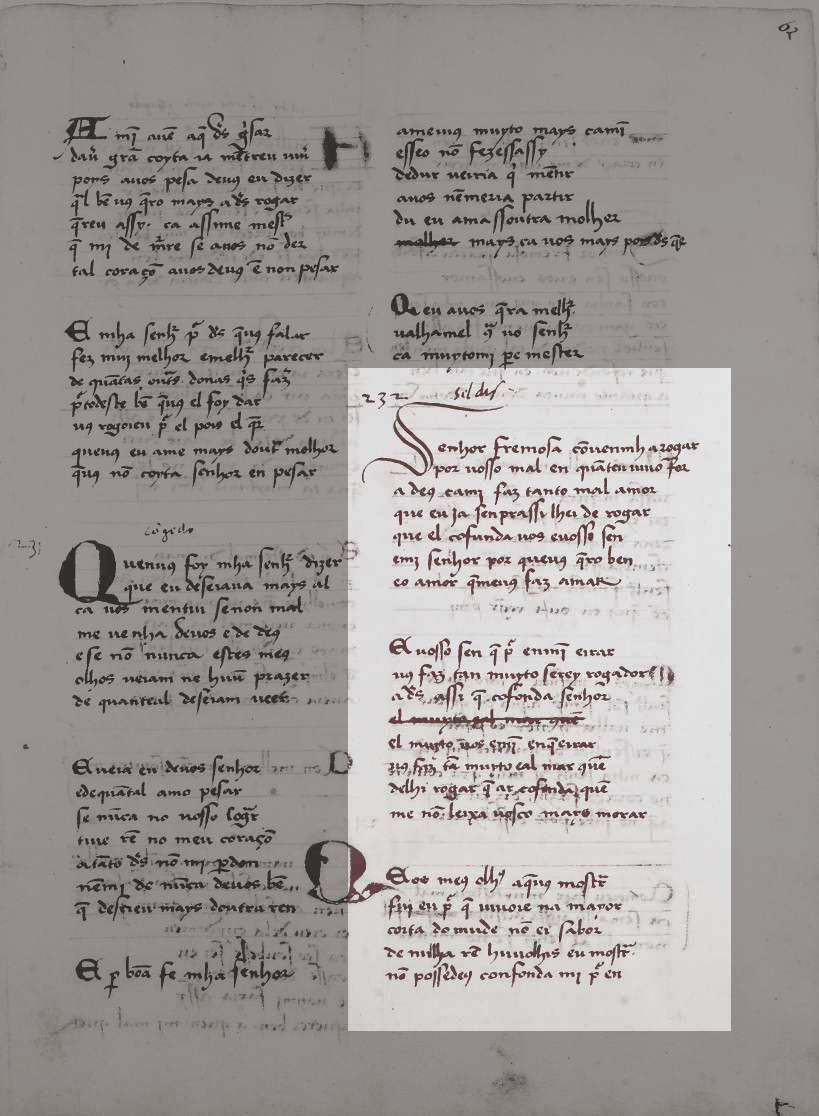 A mı̃ auẽ aq̃ đs g'sar
dau' grã coyta ia mẽtreu
pons auos pesa deug eu dizer
q̃l bẽ vus q̃ro mays a đs rogar
q̃reu assy. ca assume
q̃ mi de se auos nõ der
tal coraçõ auos deug ẽ non pesar
E mha senh̃r p̃ đs q̃vus falar
fez muj melhor emelh̃r parecer
de quãtas donas q̃s faz̃
p̃todeste bẽ q̃vus el foy dar
vus rogoieu p̃ el pois el q̃r
queuus eu ame mays dout̃ molher
q̃vus nõ coyta senhor en pesar
231
Quenus foy mha senh̃r dizer
que eu deseiaua mays al
ca vos mentiu senon mal
me uenha deuos e de deus
ese nõ nunca estes meus
olhos ueiam ne huũ prazer
de quanteal deseiam ueer
E ueia eu deuos senhor
edequãtal amo pesar
se nũca no uosso logr̃
tiue rẽ no meu coraçõ
atãto đs nõ mi perdon
nẽmi dẽ nũca deuos bẽ
q̃ deseieu mays doutra ren
E per bõa fe mha senhor
ameiuus muyto mays camĩ
esseo nõ fezessassy
dedur uerria q̃ mẽtir
auos nẽmeria partir
du eu amassoutra molher
molher mays ca uos mays pois đs q̃r
Q eu auos q̃ra melh̃r
ualhamel q̃ uo senh̃r
ca muytomi he mester
232
Senhor fremosa cõuenmh a rogar
por uosso mal en quãteu uiuo for
a deus cami faz tanto mal amor
que eu ia senprassi lhei de rogar
que el cofunda uos euosso sen
emĩ senhor por queuus q̃ro ben
eo amor q̃meuus faz amar
E uosso sen q̃ p̃ enmĩ eirar
vus faz tan muyto serey rogador
a đs assi q̃ cofonda senhor
el muyto uos emĩ enq̃ eirar
vus faz tã muyto eal mar quẽ
delhi rogar q̃ ar cofonda quẽ
me nõ leixa uosco mays morar
E aos meus olh' aq̃uus mostr̃
fui eu p̃ q̃ uiuoie na mayor
coita do mũde nõ ei sabor
de nulha rẽ huuolhis eu mostr̃
nõ possedeus confonda mi p̃ en